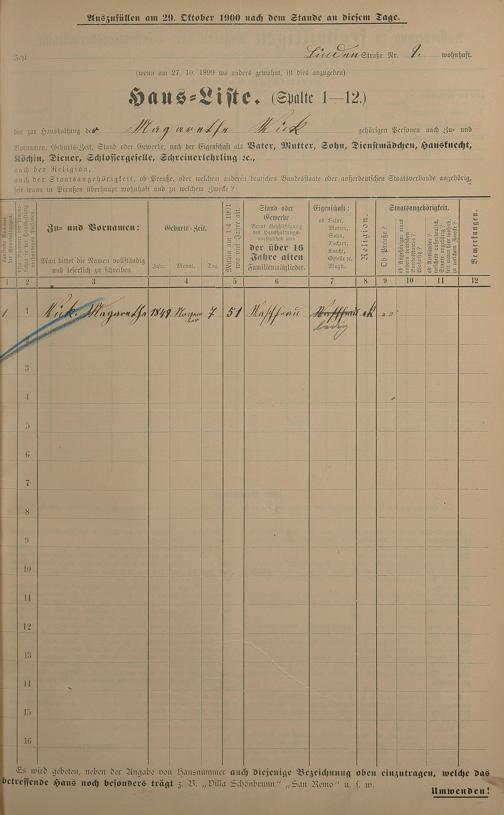 Auszufüllen am 29. Oktober 1900 nach dem Stande an diesem Tage.
Jetzt Linden Straße Nr. 9. wohnhaft.
(wenn am 27. 10. 1899 wo anders gewohnt, ist dies anzugeben)
Haus-Liste. (Spalte 1—12.)
der zur Haushaltung der Magarethe gehörigen Personen nach Zu- und
Vornamen, Geburts-Zeit, Stand oder Gewerbe, nach der Eigenschaft als Vater, Mutter, Sohn, Dienstmädchen, Hausknecht,
Köchin, Diener, Schlossergeselle, Schreinerlehrling ec.,
nach der Religion,
nach der Staatsangehörigkeit, ob Preuße, oder welchem anderen deutschen Bundesstaate oder außerdeutschen Staatsverbande angehörig,
seit wann in Preußen überhaupt wohnhaft und zu welchem Zwecke?
Zu- und Vornamen:
Man bittet die Namen vollständig
und leserlich zu schreiben.
Geburts-Zeit.
Jahr. Monat. Tag.
Mithin am 1/4 1901
Stand oder
Gewerbe
der über 16
Jahre alten
Familienmitglieder.
Eigenschaft:
ob Vater,
Mutter,
Sohn,
Tochter,
Knecht,
Geselle o.
Magd.
Religion.
Staatsangehörigkeit.
Ob Preuße?
Bemerkungen.
1 2 3 4 5 6 7 8 9 10 11 12
1 1 Magarethe 1849 7 51
ledig
2
3
4
5
6
7
8
9
10
11
12
13
14
15
16
Es wird gebeten, neben der Angabe von Hausnummer auch diejenige Bezeichnung oben einzutragen, welche das
betreffende Haus noch besonders trägt z. B. „Villa Schönbrunn" „San Remo" u. s. w.
Umwenden!